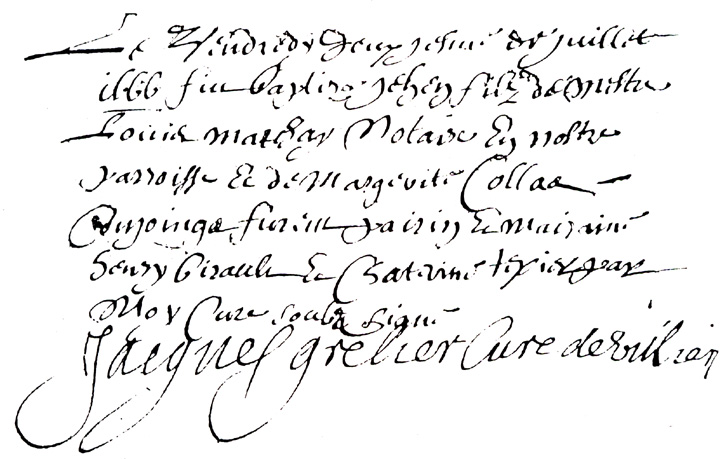 Le Vendredy deuxiesme de Juillet
1666 fut baptize Jehan filz de Mestre
Louis mathar Notaire En nostre
parroisse Et de Margerite Collas
Conjoinqs furent pairin Et mairaine
henry Girault Et Chaterine texier par
Moy Cure soubz signé
Jacques grelier Cure de